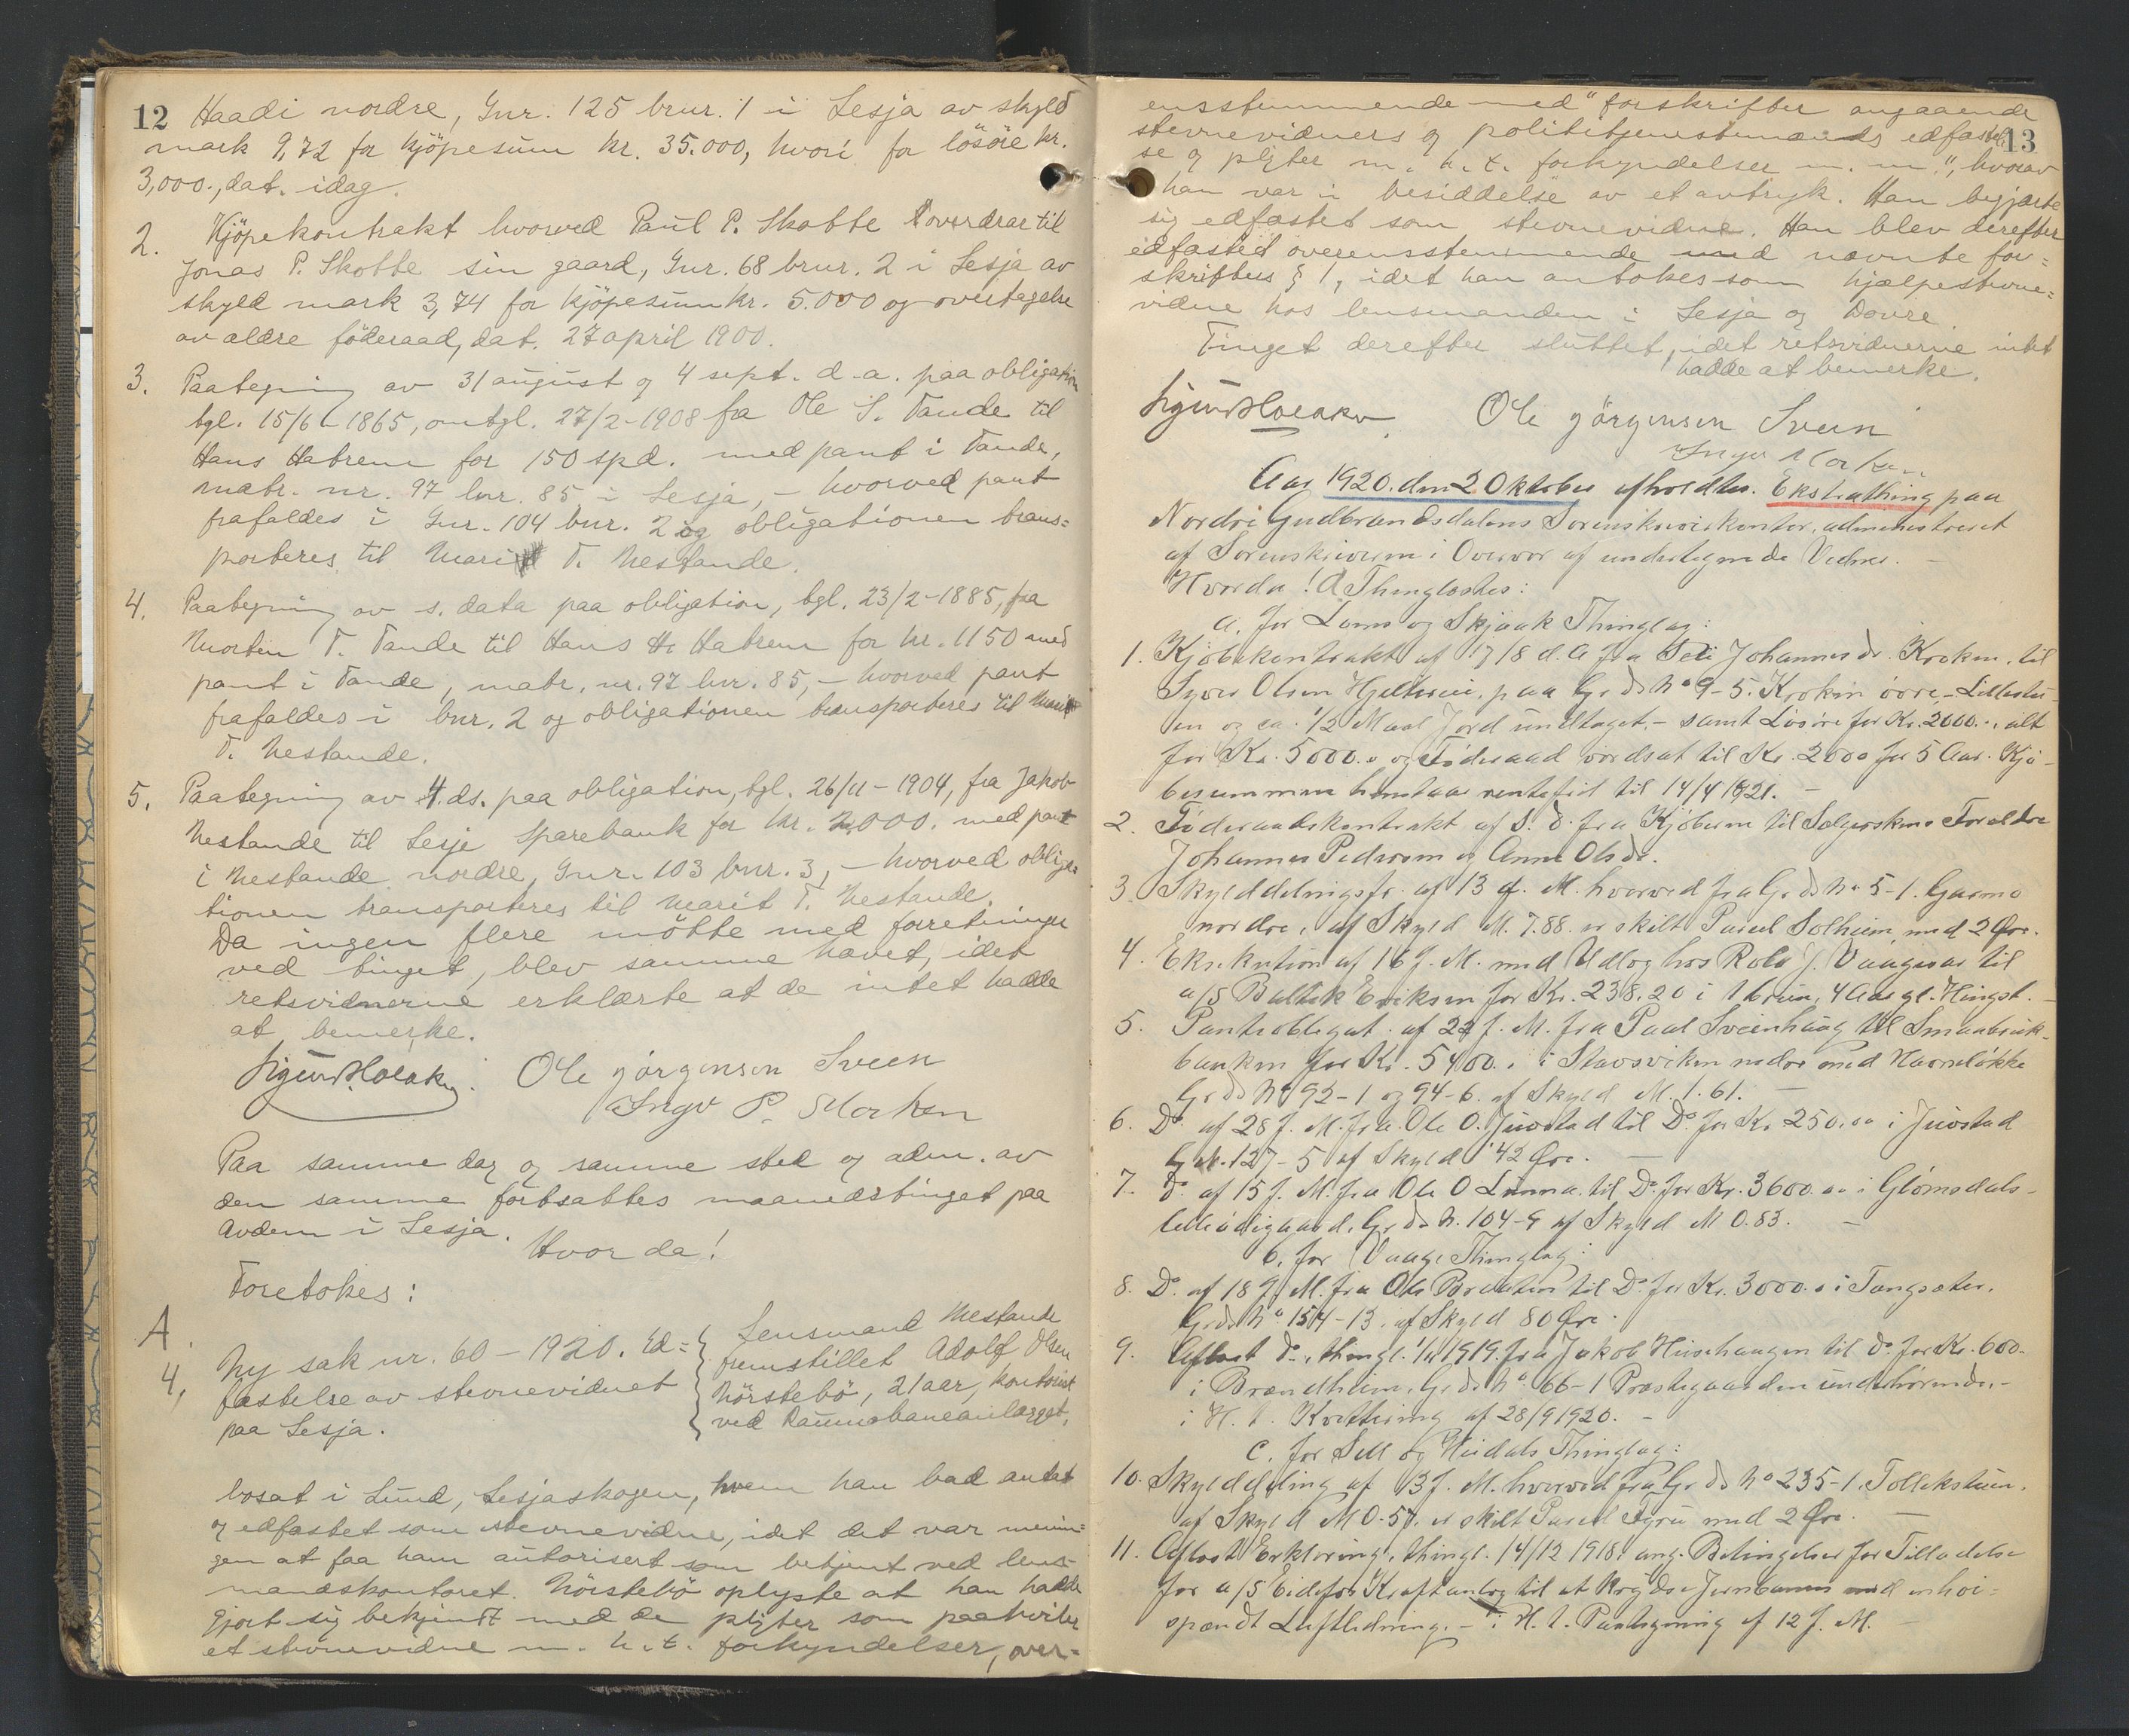 12 Haadi nordre, Gnr. 125 brnr. 1 i Lesja av skyld
mark 9,72 for kjöpesum kr. 35.000, hvori for lösöre kr.
3,000., dat. idag.
2. Kjöpekontrakt hvorved Paul P. Skotte overdrar til
Jonas P. Skotte sin gaard, Gnr. 68 brnr. 2 i Lesja av
skyld mark 3,74 for kjöpesum kr. 5.000 og overtagelse
av ældre föderaad, dat. 27 april 1900.
3. Paategning av 31 august og 4 sept. d.a. paa obligation
tgl. 15/6 1865, omtgl. 27/2-1908 fra Ole S. Tande til
Hans Hatrem for 150 spd. med pant i Tande,
matr. nr. 97 lnr. 85 i Lesja, - hvorved pant
frafaldes i Gnr. 104 bnr. 2 og obligationen trans=
porteres til Marit T. Nestande.
4. Paategning av s. data paa obligation, tgl. 23/2-1885, fra
Morten T. Tande til Hans H. Hatrem for kr. 1150 med
pant i Tande, matr. nr. 97 lnr. 85, - hvorved pant
frafaldes i bnr. 2 og obligationen transporteres til Marit
T. Nestande.
5. Paategning av 4. ds. paa obligation, tgl. 26/11-1904, fra Jakob
Nestande til Lesje Sparebank for kr. 2,000. med pant
i Nestande nordre, Gnr. 103 bnr. 3, - hvorved obliga=
tionen transporteres til Marit T. Nestande.
Da ingen flere mötte med forretninger
ved tinget, blev samme hævet, idet
retsvidnerne erklærte at de intet hadde
at bemerke.
Ole Jörgensen Sveen
Ingv P. Morken
Paa samme dag og samme sted og adm. av
den samme fortsattes maanedstinget paa
Avdem i Lesja.
Hvor da!
Foretokes:
A.
4. Ny sak nr. 60 - 1920. Ed=
fæstelse av stevnevidnet
paa Lesja.
Lensmand Nestande
fremstillet Adolf Olsen
Nörstebö, 21 aar, kontorist
ved Raumabaneanlægget,
bosat i Lund, Lesjaskogen, hvem han bad antat
og edfæstet som stevnevidne, idet det var menin=
gen at faa ham autorisert som betjent ved lens=
mandskontoret. Nörstebö oplyste at han hadde
gjort sig bekjendt med de pligter som paahviler
et stevnevidne m. h. t. forkyndelser, over=
13
ensstemmende med "forskrifter angaaende
stevnevidners og politibetjenstemænds edfæstel
se og pligter m. h. t. forkyndelser m. m.", hvorav
han var i besiddelse av et avtryk. Han begjærte
sig edfæstet som stevnevidne. Han blev derefter
edfæsted overensstemmende med nævnte for=
skrifters § 1, idet han antokes som hjælpestevne=
vidne hos lensmanden i Lesja og Dovre.
Tinget derefter sluttet, idet retsvidnerne intet
hadde at bemerke.
Ole Jörgensen Sveen
Ingv Morken
Aar 1920. den 2 Oktober afholdtes Ekstrathing paa
Nordre Gudbrandsdalens Sorenskriverkontor, administreret
af Sorenskriveren i Overvær af undertegnede Vidner. -
Hvorda! A Thinglæstes:
a. for Loms og Skjaak Thinglag:
1. Kjøbekontrakt af 17/8 d. A fra Seli Johannesdr. Kroken, til
Syver Olsen Hjeltveie, paa Gr. ds No 9-5. Krokin øvre, - Lillestu
en og ca. 1/2 Maal Jord undtaget, - samt Løsøre for Kr. 2000.., alt
for Kr. 5000.. og Føderaad værdsat til Kr. 2000 for 5 Aar. Kjø-
besummen henstaar rentefrit til 14/4 1921. -
2. Føderaadskontrakt af s. D. fra Kjøberen til Sælgerskens Forældre
Johannes Pedersen og Anne Olsdr.
3. Skylddelingsfr. af 13 f. M. hvorved fra Gr. ds No 5-1. Garmo
nordre, af Skyld M. 7.88. er skilt Parcel Solheim, med 2 Øre.
4. Eksekution af 16 f. M. med Udlæg hos Rolv J. Vaageas til
a/s Baltisk Eriksen for Kr. 238.20 i 1 brun, 4 Aar gl. Hingst. -
5. Pantobligat. af 22 f. M. fra Paul Sveenhaug til Smaabruk-
banken for Kr. 5400.. i Stavsviken nedre med Havneløkke
Gr. ds No 92-1 og 94-6. af Skyld M. 1.61. -
6. Do. af 28 f. M. fra Ole O. Juvstad til Do. for Kr. 250.oo i Juvstad
G. N. 127-5 af Skyld 42 Øre. -
7. Do. af 15 f. M. fra Ole O til Do. for Kr. 3600.oo i Glømsdals-
Gr. ds N. 104-9 af Skyld M 0.83. -
b. for Vaage Thinglag:
8. Do. af 18 f. M. fra Ole Braaten til Do. for Kr. 3000.. i Tangsæter,
Gr. ds No 154-13. af Skyld 80 Øre.
9. Aflæst Do., thingl. 1/11 1919. fra Jakob Huschaugen til Do. for Kr. 600.
i Brændheim, Gr. ds No 66-1 Præstegaarden underhørende, -
i H. t. Kvittering af 28/9 1920. -
c. for Sell og Heidals Thinglag:
10. Skylddeling af 13 f. M. hvorved fra Gr. ds No 235-1. Tollekstuen,
af Skyld M 0.57. er skilt Parcel Fyru med 2 Øre. -
11. Aflæst Erklæring, thingl. 14/12 1918, ang. Betingelser for Tilladelse
for a/s Eidefos Kraftanlæg til at krydse Jernbanen med en høi=
spændt Luftledning. - i H. t. Paategning af 12 f. M. -